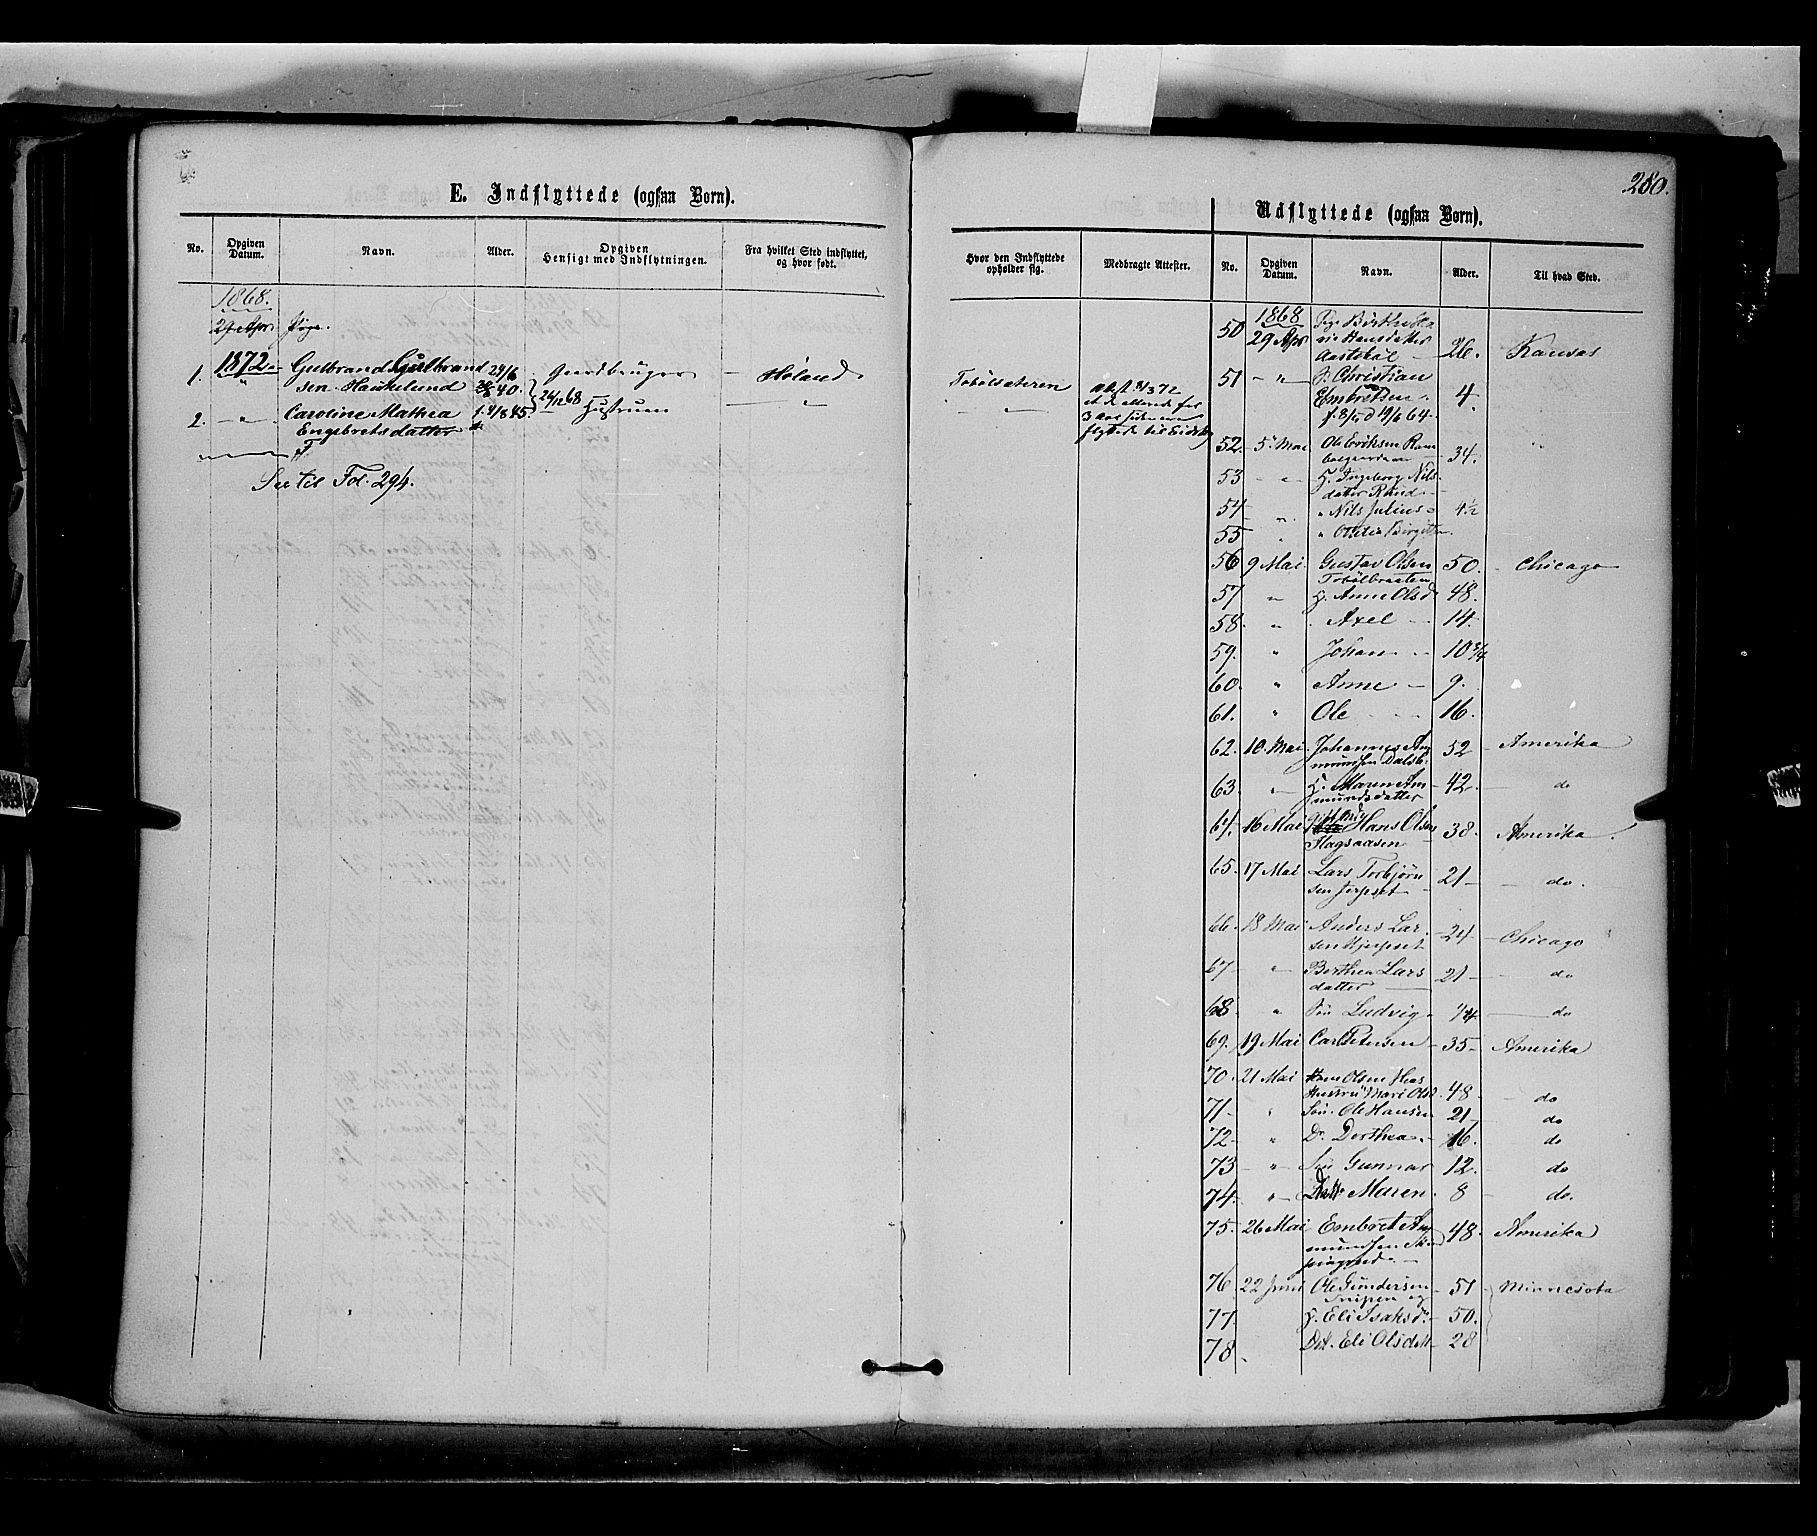 280.
E. Indflyttede (ogsaa Børn).
No.
Opgiven Datum.
Navn.
Alder.
Opgiven Hensigt med Indflytningen.
Fra hvilket Sted indflyttet, og hvor født.
1868.
29 Apr.
1872.
1. " Gulbrand Gulbrand 24/6
sen Haukelund 40. Gardbruger - Høland
2. - " - Caroline Mathea 45. 24/12 68 Hustruen - " -
Engebretsdatter
See til Fol. 294.
Hvor den Indflyttede opholder sig.
Medbragte Attester.
Tobølsæteren
- " - 3 Aar siden
flyttede til
Udflyttede (ogsaa Børn).
No.
Opgiven Datum.
Navn.
Alder.
Til hvad Sted.
1868
50 29 Apr Hansdatter
Aastebøl - 26. Kansas
51 - " - Christian
Embretsen. 4.
52. 5. Mai Ole Eriksen
34.
53 - " - H. Ingeborg Nils
datter Rud
54 - " - " Nils Julius - 4½
55 " "
56 9 Mai Gustav Olsen 50. - Chicago
Tobølbraaten
57 " H. Anne Olsd 48.
58. " Axel - 14.
59. " Johan - 10 3/4
60. " Anne - 9.
61. " Ole - 16.
62. 10. Mai Johannes Am 52 - Amerika
mundsen Dalsb.
63. - " - H. Maren Am - 42 - do
mundsdatter
64. 16 Mai Hans Olsen 38. - Amerika.
Flagsaasen
65. 17 Mai Lars Torbjørn 21 - do.
sen
66. 18 Mai Anders Lar 24 - Chicago
sen
67 - " Berthea Lars 21 - do
datter
68 " Søn Ludvig - 1/4 - do
69. 19 Mai Carl Petersen - 35 - Amerika
70. 21 Mai Hans Olsen
Hustru Mari Olsd. 48 - do
71 - " Søn. Ole Hansen 21 - do
72 - " Dr. Dorthea - 16. do
73 - " Søn Gunnar 12. - do
74. - " - Datt. Maren. 8 - do.
75. 26 Mai Embret Am 48. Amerika
mundsen
76. 22 Juni Ole Gundersen - 51 - Minnesota
Snipen og
77. H. Eli Isaksd. - 50.
78. Dtt. Eli Olsdatt - 28